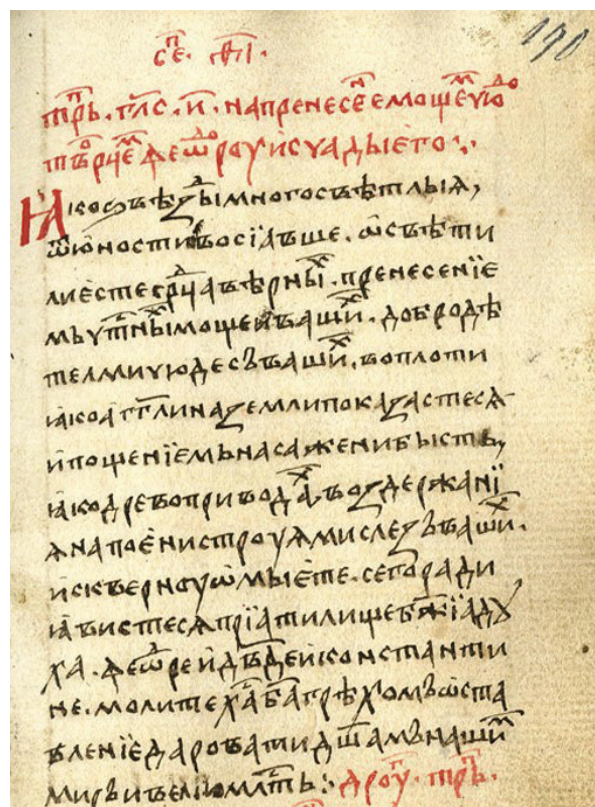 сеп. в҃і.
трⷫ҇ь. глс. и҃. на пренесенⷩ҇ е мощеⷨ҇ чюдо
творцеⷨ҇ феѡдⷪ҇роу и счады его :.
Ꙗко ѕвѣзды многосвѣтлыѧ,
ѿ юности восїавше. ѡсвѣти
ли есте срⷣца вѣрныⷯ. пренесенїе
мъ чтⷭныⷯ мощей вашиⷯ. добродѣ
телми чюдесъ вашиⷯ. во плоти
ꙗко агг҃ли на земли показастесѧ
и пощенїемъ насажени бысть,
ꙗко древо при водаⷯ, воздержанї
ѧ напоени строуѧми слезъ вашиⷯ.
и скверноу ѡмыете. сего ради
ꙗвистесѧ прїатилище бж҃їа дꙋ
ха. феѡⷣре и дв҃де и константи
не. молите хⷭ҇а бг҃а грѣхомъ ѡста
вленїе даровати дш҃амъ нашиⷨ
миръ и велїю млⷭ҇ть :. дроуⷢ҇. трⷫ҇ь.